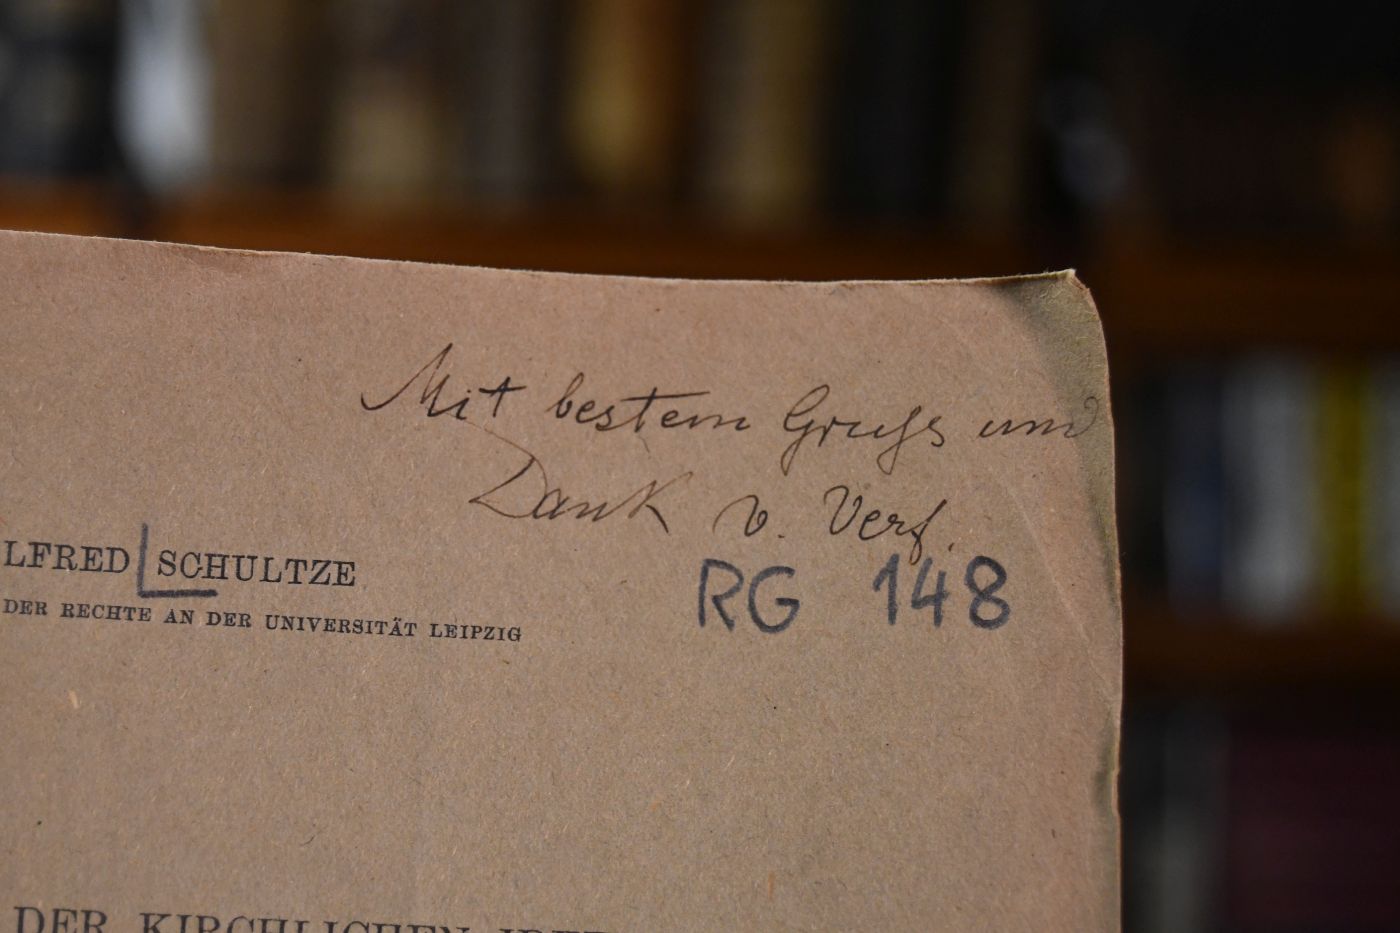 Mit bestem Gruss und
Dank v. Verf.
LFRED SCHULTZE
RG 148
DER RECHTE AN DER UNIVERSITÄT LEIPZIG
DER KIRCHLICHEN